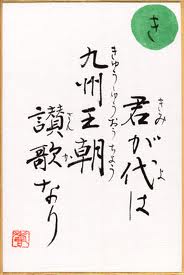 き
君が代は
九州王朝
讃歌なり
きみ
よ
きゅうしゅうおうちょう
さんか